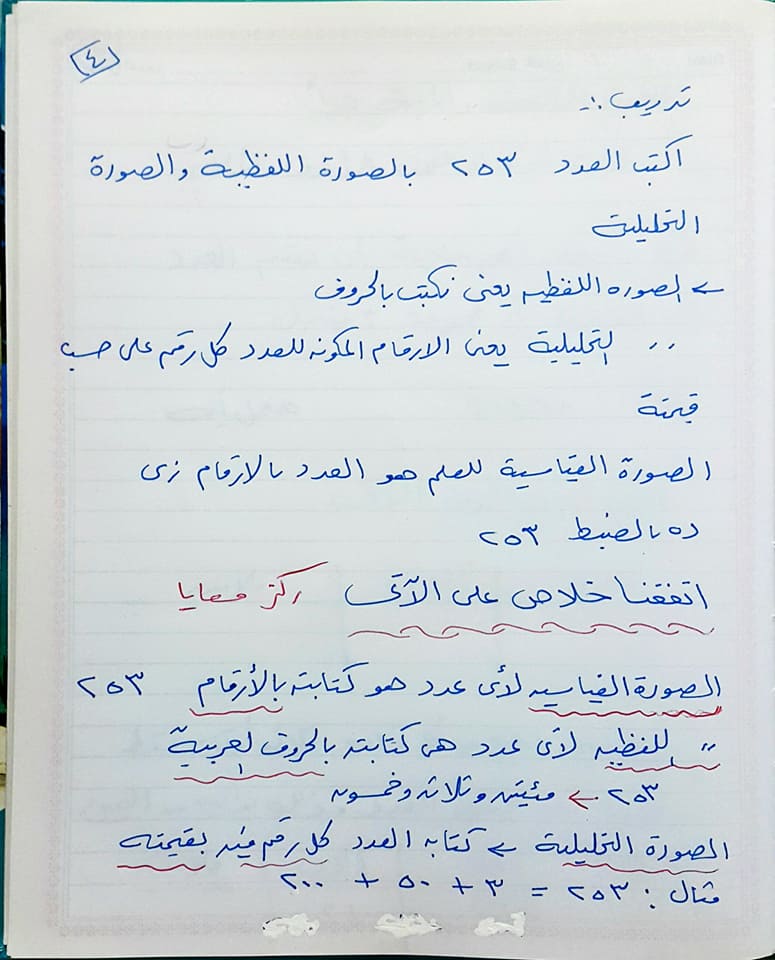 ٤
تدريب :-
اكتب العدد ٢٥٣ بالصورة اللفظية والصورة
التحليلية
← الصوره اللفظيه يعنى نكتب بالحروف
,, التحليلية يعنى الارقام المكونه للعدد كل رقم على حسب
قيمتة
الصورة القياسية للعلم هو العدد بالارقام زى
ده بالضبط ٢٥٣
اتفقنا خلاص على الآتى ركز معايا
الصورة القياسيه لأى عدد هو كتابته بالأرقام ٢٥٣
,, اللفظيه لأى عدد هى كتابته بالحروف العربية
٢٥٣ ← مئيتن وثلاثه وخمسون
الصورة التحليلية ← كتابه العدد كل رقم فيه بقيمته
مثال : ٢٥٣ = ٣ + ٥٠ + ٢٠٠